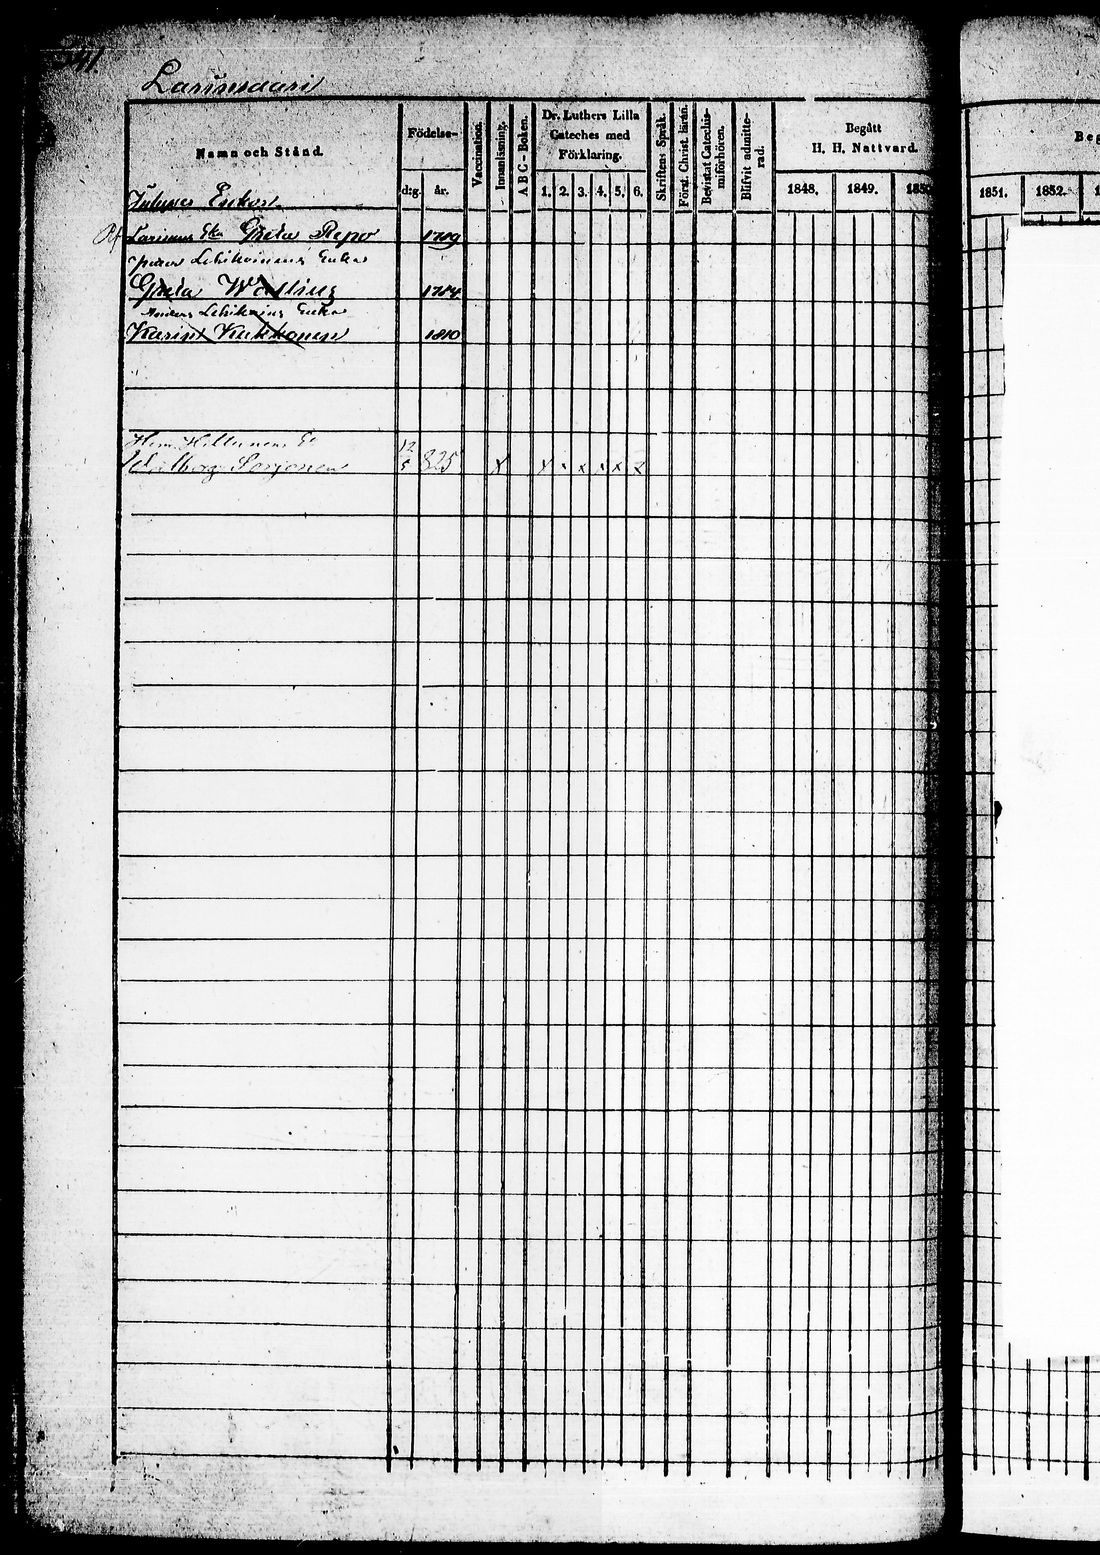 341.
Larinsaari
Namn och Stånd.
Födelse-
dag.
år.
Vaccination.
Innanläsning.
A B C - Boken.
Dr. Luthers Lilla
Cateches med
Förklaring.
1. 2. 3. 4. 5. 6.
Skriftens Språk.
Förgt. Christ. läran.
Bevistat Catechis-
miförhören.
Blifvit admitte-
rad.
Begått
H. H. Nattvard.
1848. 1849. 1850
1851. 1852. 1
Beg
Enkor
Larinens Eka Greta Repo 1789
Lehikoinens Enka
Greta Walling 1784
Anders Lehikoins Enka
Karin Kukkonen 1810
Hem. Hiltunens
Walborg Sorjonen 12/5 825 x x x x x x x